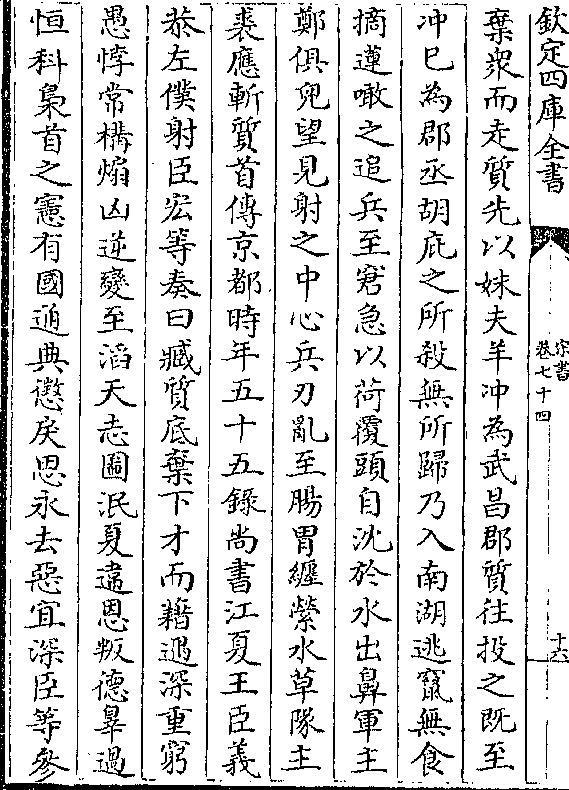 欽定四庫全書
宋書
卷七十四
十六
棄衆而走質先以妹夫羊冲為武昌郡質往投之既至
冲已為郡丞胡庇之所殺無所歸乃入南湖逃竄無食
摘蓮噉之追兵至窘急以荷覆頭自沈於水出鼻軍主
鄭俱兒望見射之中心兵刃亂至腸胃纒縈水草隊主
裘應斬質首傳京都時年五十五錄尚書江夏王臣義
恭左僕射臣宏等奏曰臧質底棄下才而藉遇深重窮
愚悖常構煽凶逆變至滔天志圖泯夏違恩叛德辠過
恒科梟首之憲有國通典懲戾思永去惡宜深臣等參